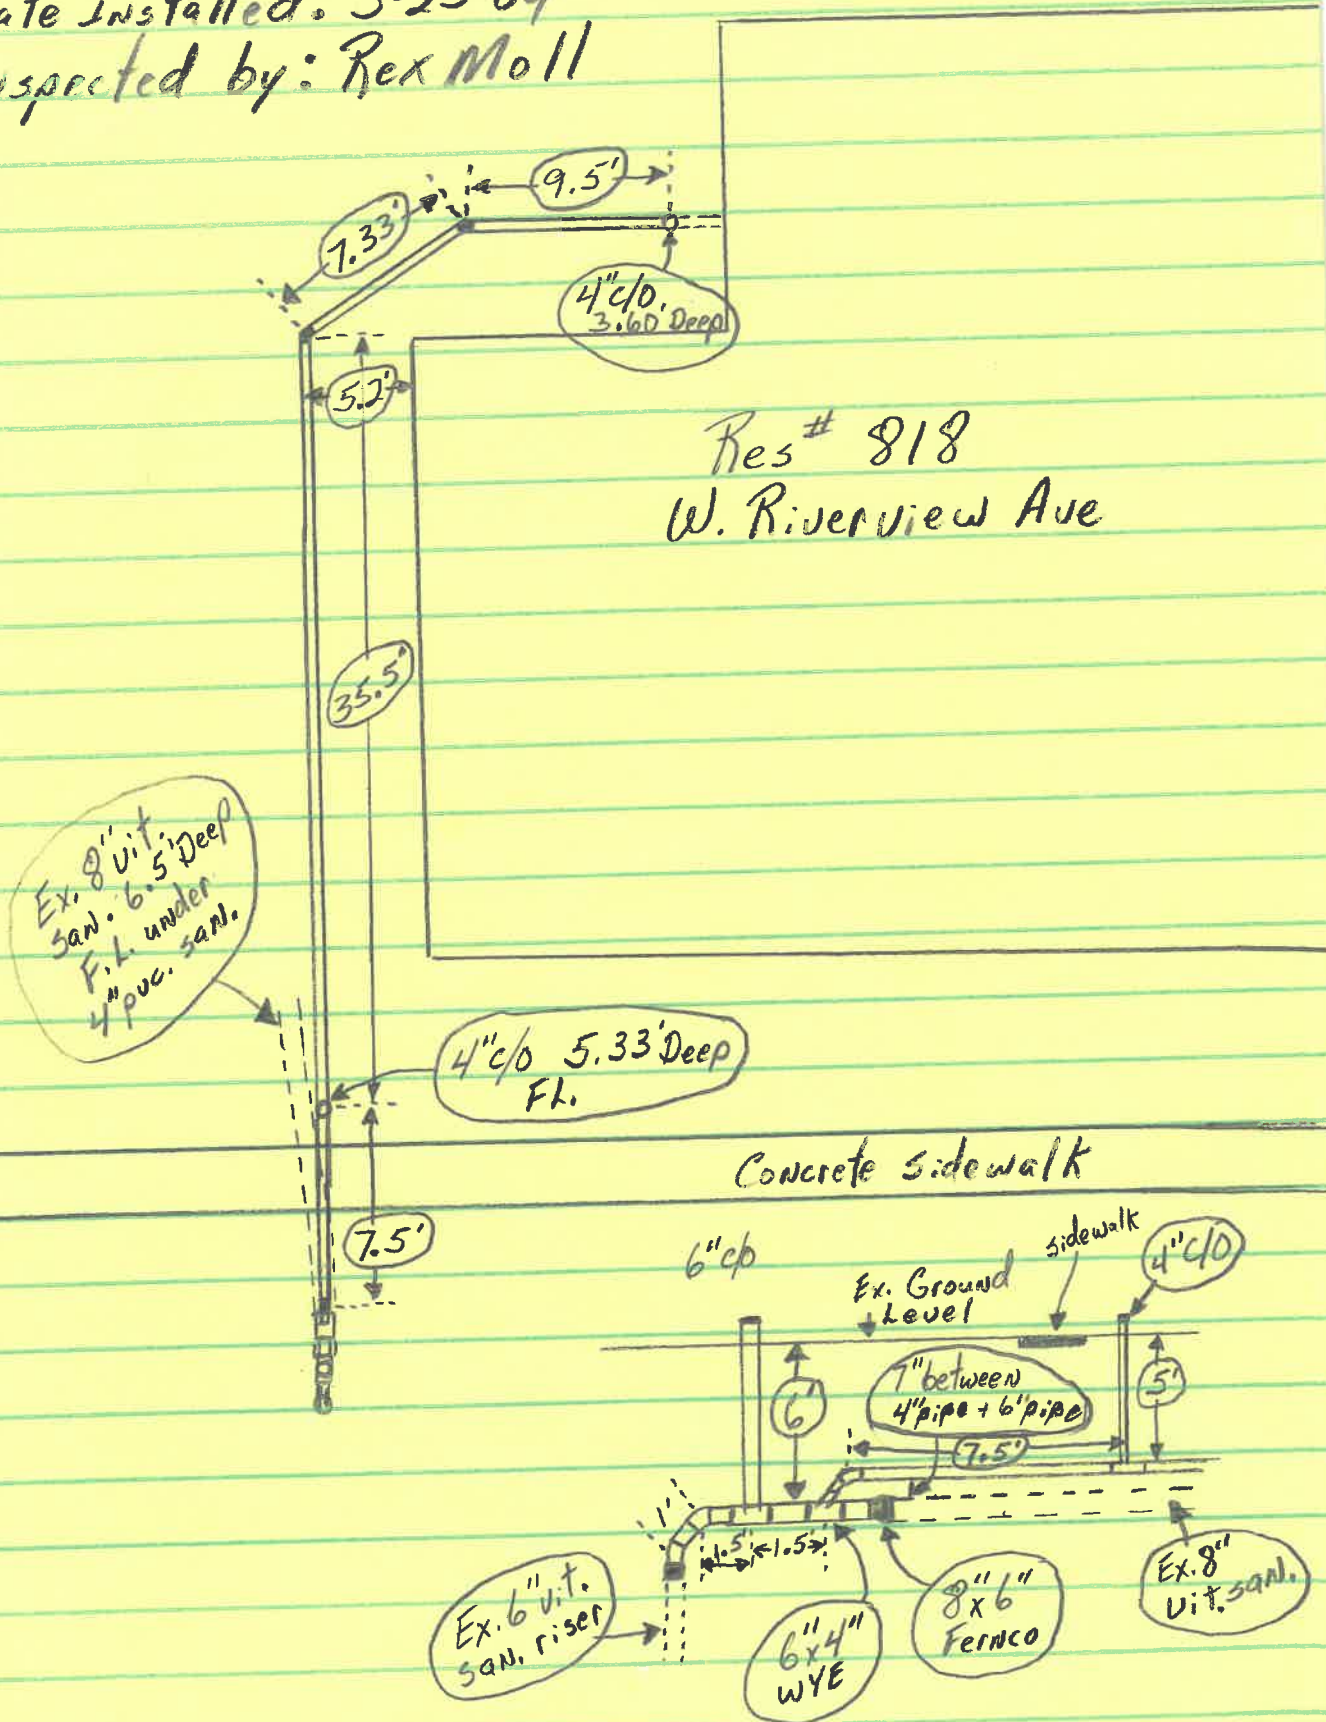 ate Installed: 5-25-04
spected by: Rex Moll
9.5'
7.33'
4" c/o.
3.60' Deep
5.2'
Res# 818
W. Riverview Ave
35.5'
Ex. 8" vit.
san. 6.5' Deep
F.L. under
4" pvc. san.
4" c/o 5.33' Deep
FL.
Concrete sidewalk
7.5'
6" c/o
sidewalk
4" c/o
Ex. Ground
Level
6'
7" between
4" pipe + 6" pipe
5'
7.5'
1'
1.5' 1.5'
Ex. 6" vit.
san. riser
6"x4"
WYE
8"x6"
Fernco
Ex. 8"
vit. san.